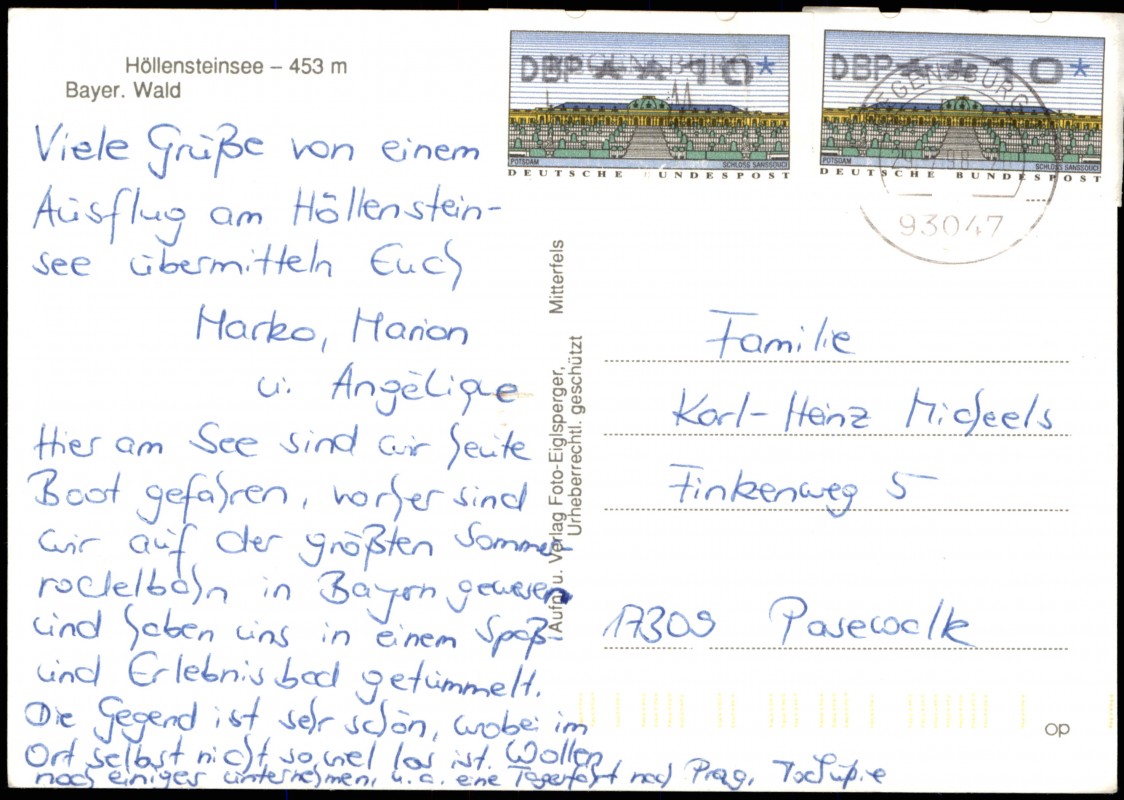 Höllensteinsee – 453 m
Bayer. Wald
Viele Grüße von einem
Ausflug am Höllenstein-
see übermitteln Euch
Marko, Marion
u. Angélique
Hier am See sind wir heute
Boot gefahren, vorher sind
wir auf der größten Sommer-
rodelbahn in Bayern gewesen
und haben uns in einem Spaß-
und Erlebnisbad getümmelt.
Die Gegend ist sehr schön, wobei im
Ort selbst nicht so viel los ist. Wollen
noch einiges unternehmen, u. a. eine Tagesfahrt nach Prag,
Aufn. u. Verlag Foto-Eiglsperger, Mitterfels
Urheberrechtl. geschützt
DBP 10*
POTSDAM SCHLOSS SANSSOUCI
DEUTSCHE BUNDESPOST
DBP 10*
POTSDAM SCHLOSS SANSSOUCI
DEUTSCHE BUNDESPOST
REGENSBURG
93047
Familie
Karl-Heinz Micheels
Finkenweg 5
17309 Pasewalk
op